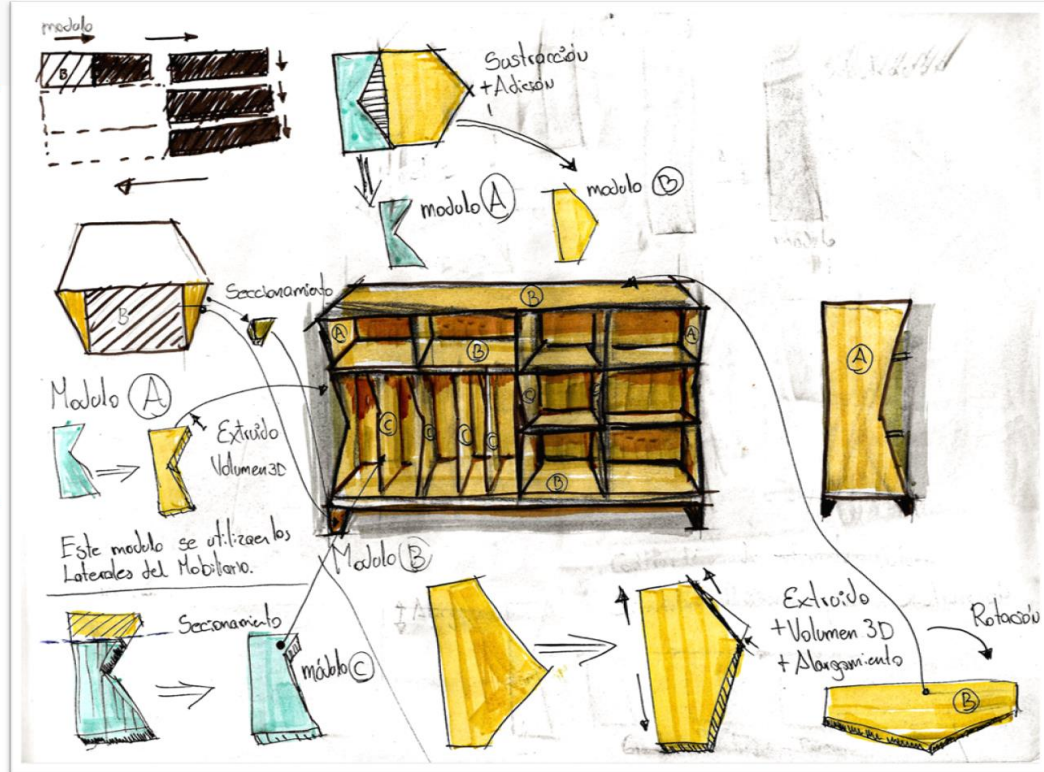 modulo
B
Sustracción
+Adición
modulo A
modulo B
B
Seccionamiento
B
A
B
A
C
C
C
C
C
B
A
Modulo A
Extruido
Volumen 3D
Este modulo se utiliza en los
Laterales del Mobiliario.
Modulo B
Seccionamiento
módulo C
Extruido
+Volumen 3D
+Alargamiento
Rotación
B